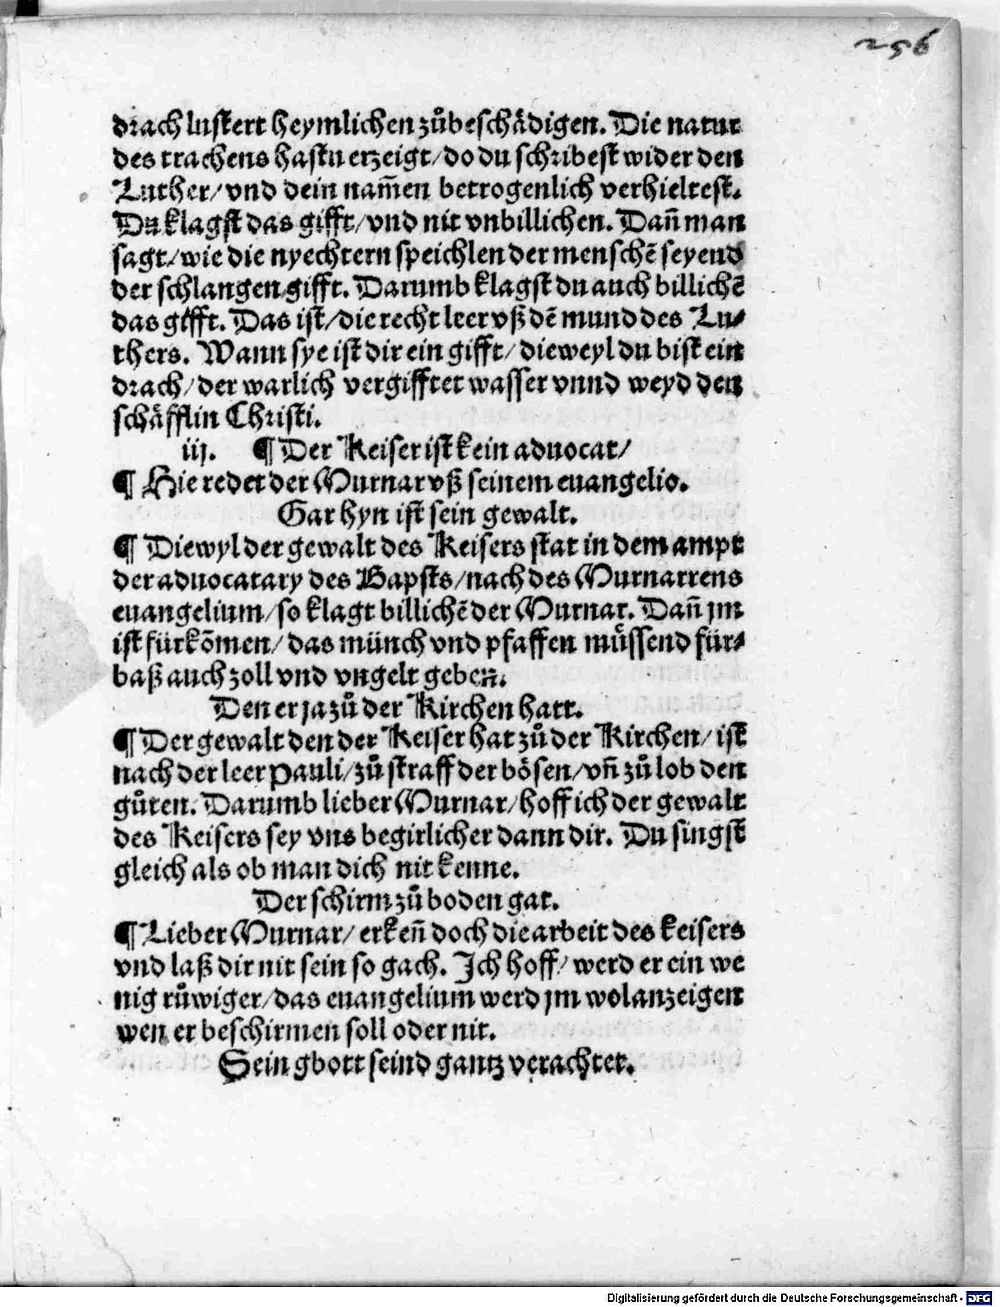 256
drach lustert heymlichen zůbeschådigen. Die natur
des trachens hastu erzeigt/do du schribest wider den
Luther/vnd dein nam̃en betrogenlich verhieltest.
Du klagst das gifft/vnd nit vnbillichen. Dañ man
sagt/wie die nyechtern speichlen der menschẽ seyend
der schlangen gifft. Darumb klagst du auch billichẽ
das gifft. Das ist/die recht leer vß dẽ mund des Lu⸗
thers. Wann sye ist dir ein gifft/dieweyl du bist ein
drach/der warlich vergifftet wasser vnnd weyd den
schåfflin Christi.
iij. ¶ Der Keiser ist kein aduocat/
¶ Hie redet der Murnar vß seinem euangelio.
Gar hyn ist sein gewalt.
¶ Diewyl der gewalt des Keisers stat in dem ampt
der aduocatary des Bapsts/nach des Murnarrens
euangelium/so klagt billichẽ der Murnar. Dañ jm
ist fürkõmen/das münch vnd pfaffen müssend für⸗
baß auch zoll vnd vngelt geben.
Den er ja zů der Kirchen hatt.
¶ Der gewalt den der Keiser hat zů der Kirchen/ist
nach der leer Pauli/zů straff der bösen/vñ zů lob den
gůten. Darumb lieber Murnar/hoff ich der gewalt
des Keisers sey vns begirlicher dann dir. Du singst
gleich als ob man dich nit kenne.
Der schirm zů boden gat.
¶ Lieber Murnar/erkeñ doch die arbeit des keisers
vnd laß dir nit sein so gach. Ich hoff/werd er ein we
nig růwiger/das euangelium werd jm wol anzeigen
wen er beschirmen soll oder nit.
Sein gbott seind gantz verachtet.
Digitalisierung gefördert durch die Deutsche Forschungsgemeinschaft - DFG